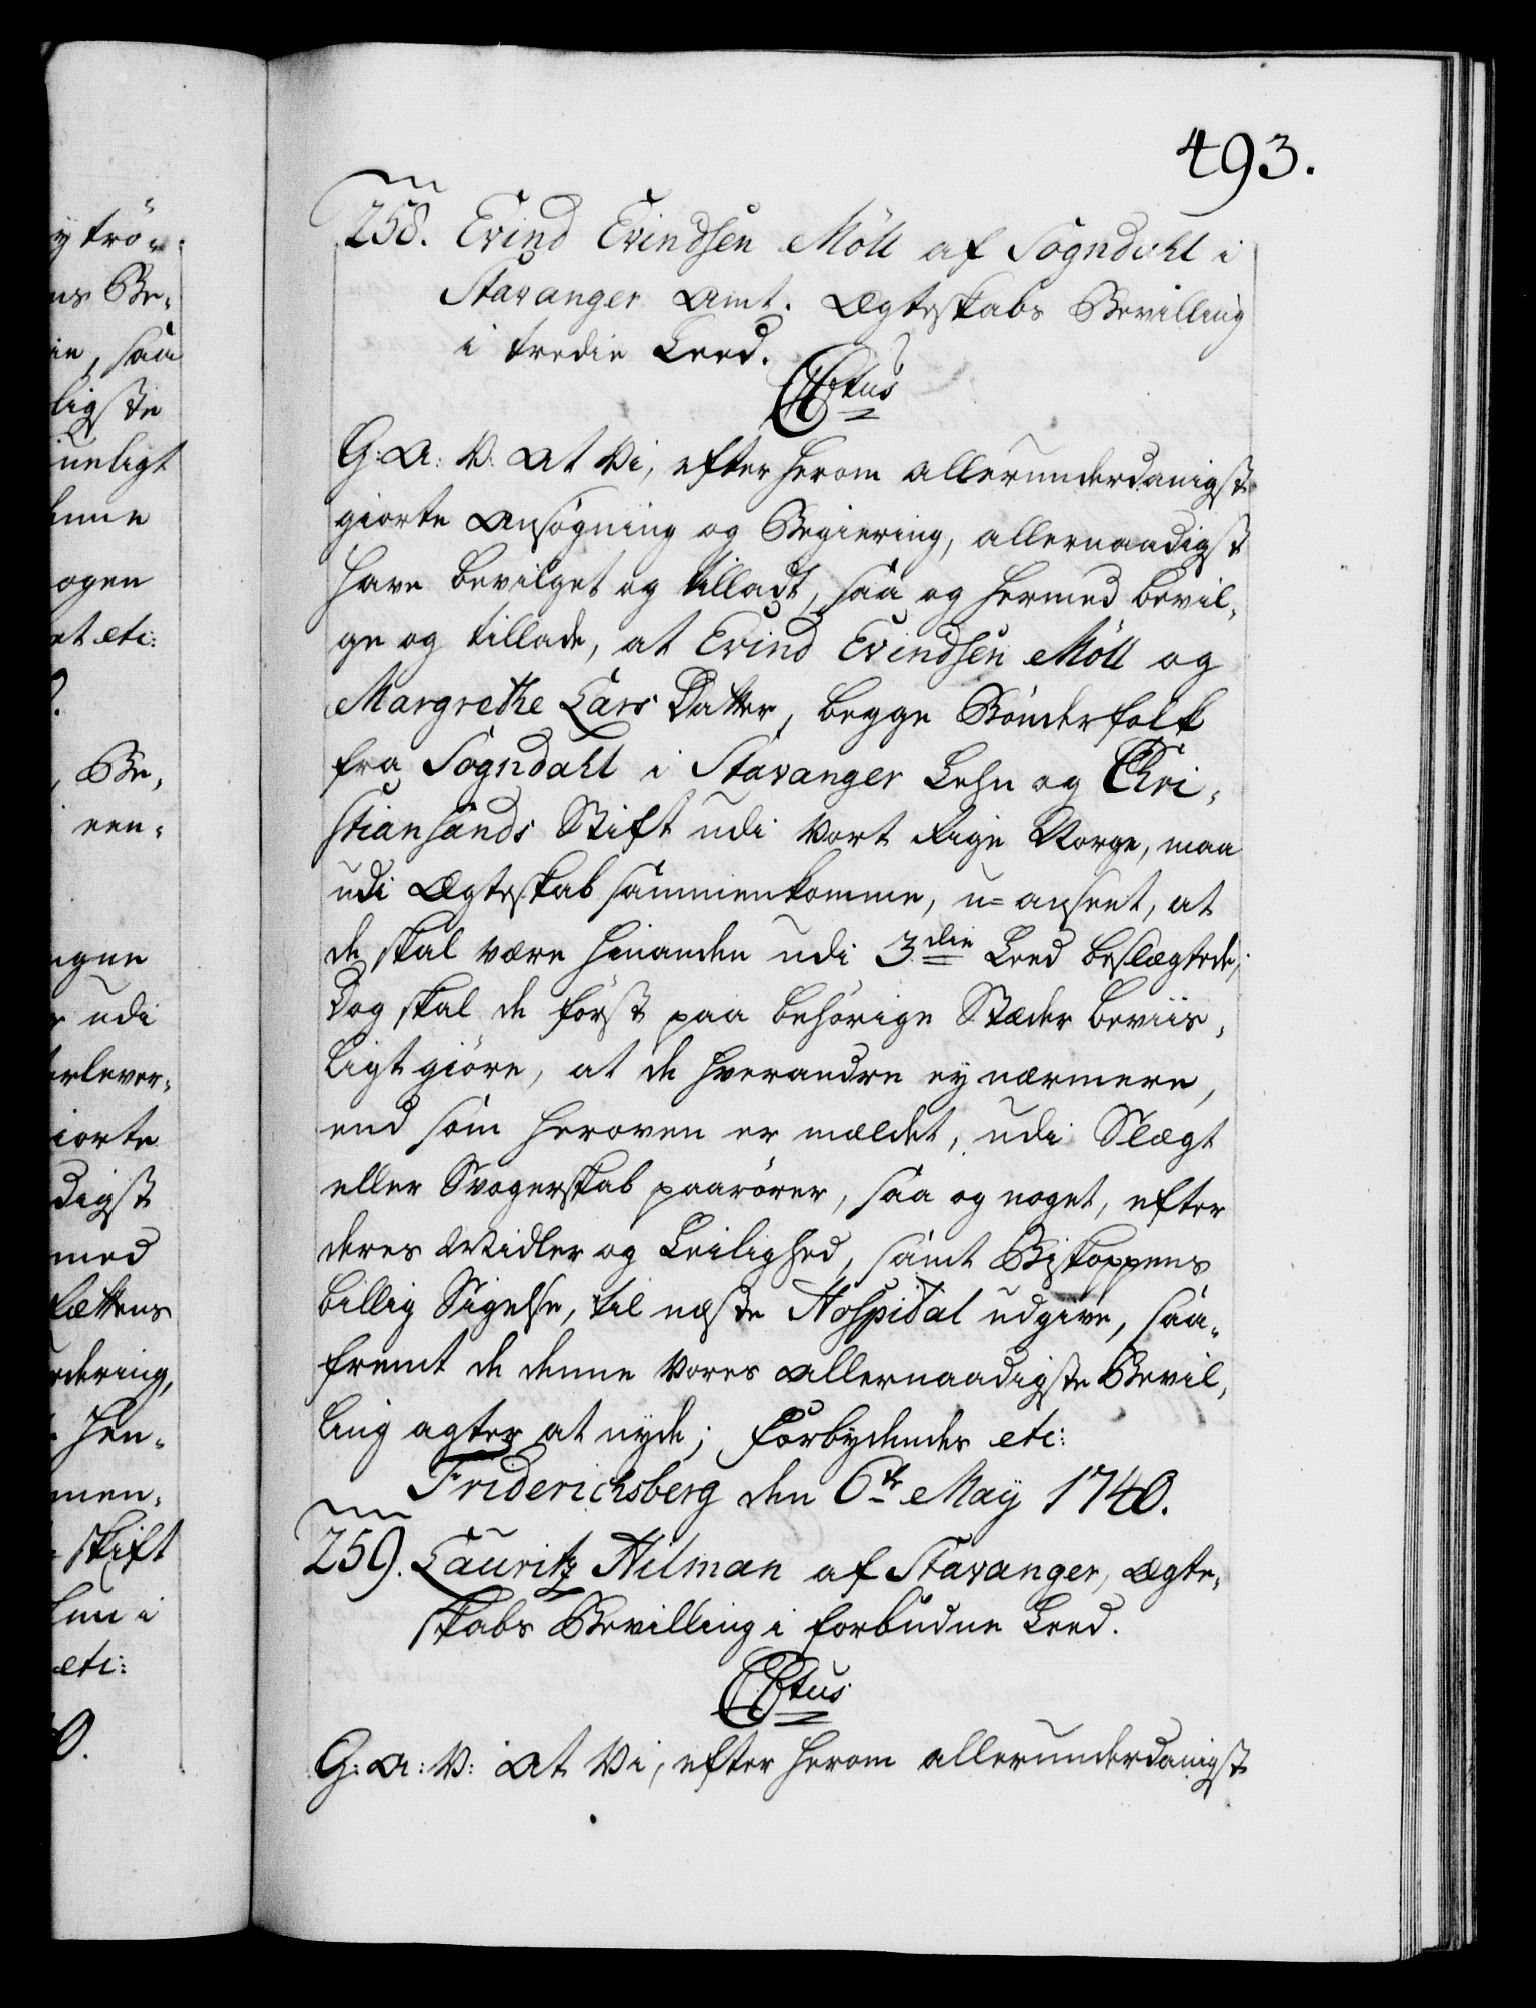 493.
258. Evind Evindsen Möll af Sogndahl i
Stavanger Amt. Ægteskabs Bevilling
i tredie Leed.
C6tus
G: A: V: At Vi, efter herom allerunderdanigst
giorte Ansøgning og Begiering, allernaadigst
have bevilget og tilladt, saa og hermed bevil-
ge og tillade, at Evind Evindsen Möll og
Margrethe Lars Datter, begge Bønderfolk
fra Sogndahl i Stavanger Lehn og Chri-
stiansands Stift udi Vort Rige Norge, maa
udi Ægteskab sammenkomme, u-anseet, at
de skal være hinanden udi 3die Leed beslægtede;
Dog skal de först paa behörige Stæder beviis-
ligt giøre, at de hverandre ey nærmere,
end som heroven er mældet, udi Slægt
eller Svogerskab paarører, saa og noget, efter
deres Midler og Leilighed, samt Biskoppens
billig Sigelse, til næste Hospital udgive, saa-
fremt de denne Vores allernaadigste Bevil-
ling agter at nyde; Forbydendes etc:
Friderichsberg den 6te May 1740.
259. Lauritz Hilman af Stavanger, Ægte-
skabs Bevilling i forbudne Leed.
C6tus
G: A: V: At Vi, efter herom allerunderdanigst